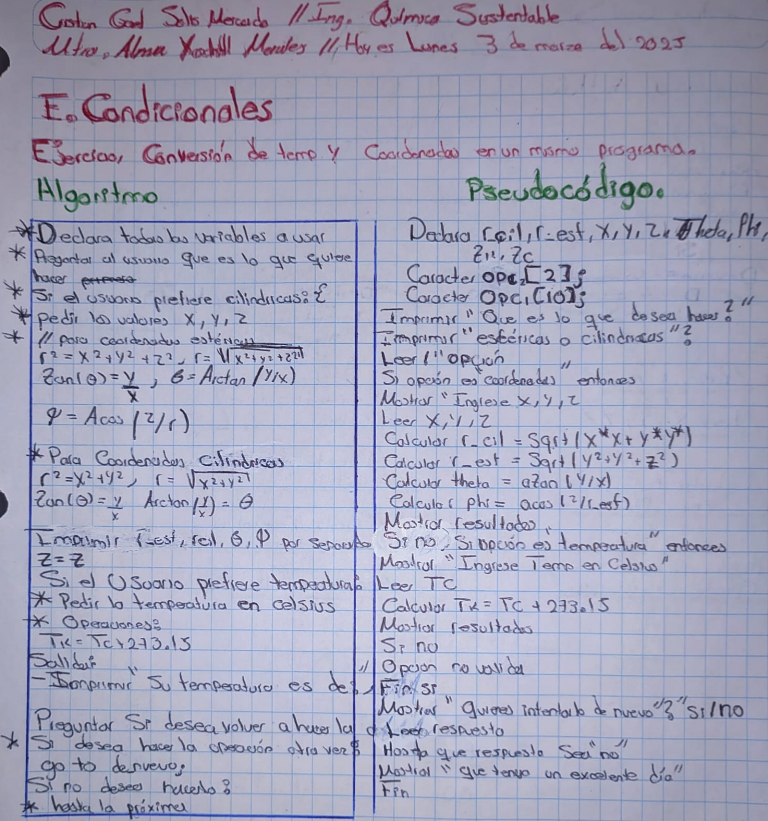 Gael Solis Mercado // Ing. Química Sustentable
Mtra. Alma Xochitl Morales // Hoy es Lunes 3 de marzo del 2025
E. Condicionales
Ejercicio, Conversión de temp y Coordenadas en un mismo programa.
Algoritmo
* Declara todas las variables a usar
* Preguntar al usuario que es lo que quiere
hacer
* Si el usuario prefiere cilindricas: {
* pedir los valores X, Y, Z
* // para coordenadas esfericas
r² = x² + y² + z², r = √x²+y²+z²
Tan(θ) = y/x, θ = Arctan (y/x)
φ = Acos (z/r)
* Para Coordenadas Cilindricas
r² = x² + y², r = √x²+y²
Tan(θ) = y/x Arctan(y/x) = θ
Imprimir r_est, rcil, θ, φ por separado
Z = Z
Si el Usuario prefiere temperatura:
* Pedir la temperatura en celsius
* Operaciones:
TK = Tc + 273.15
Salida:
- Imprimir "Su temperatura es de: "
Preguntar Si desea volver a hacer la
* Si desea hacer la operación otra vez:
go to denuevo;
Si no desea hacerlo:
* hasta la próxima
Pseudocódigo.
Declara r_cil, r_est, X, Y, Z, theta, Phi,
TK, TC
Caracter opc[2];
Caracter Opc1[10];
Imprimir "Que es lo que desea hacer?"
Imprimir "esféricas o cilindricas"?
Leer "opción"
Si opción es "coordenadas" entonces
Mostrar "Ingrese X, Y, Z
Leer X, Y, Z
Calcular r_cil = Sqrt (X*X + Y*Y)
Calcular r_est = Sqrt (Y²+Y²+Z²)
Calcular theta = aTan (Y/X)
Calcular phi = acos (Z/r_est)
Mostrar resultados
Si no, Si opción es "temperatura" entonces
Mostrar "Ingrese Temp en Celsius"
Leer TC
Calcular TK = TC + 273.15
Mostrar resultados
Si no
Opcion no valida
Fin si
Mostrar "quieres intentarlo de nuevo"? "si/no
Leer respuesta
Hasta que respuesta Sea "no"
Mostrar "que tenga un excelente día"
Fin